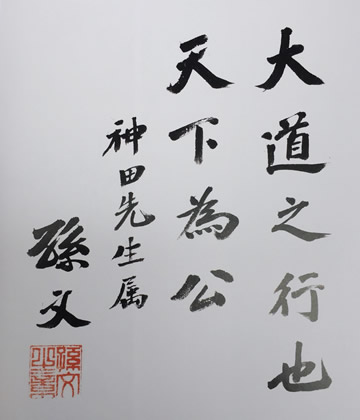 大道之行也
天下為公
神田先生属
孫文
孫文之印